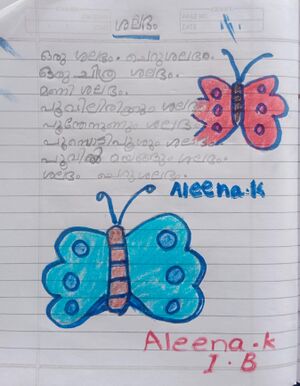 ശലഭം
ഒരു ശലഭം. ചെറുശലഭം.
ഒരു ചിത്ര ശലഭം.
മണി ശലഭം.
പൂവിലിരിക്കും ശലഭം
പൂന്തേനുണ്ണും ശലഭം
പൂമ്പൊടിപൂശും ശലഭം.
പൂവിൽ മയങ്ങും ശലഭം.
ശലഭം ചെറുശലഭം.
Aleena.k
Aleena.k
1.B